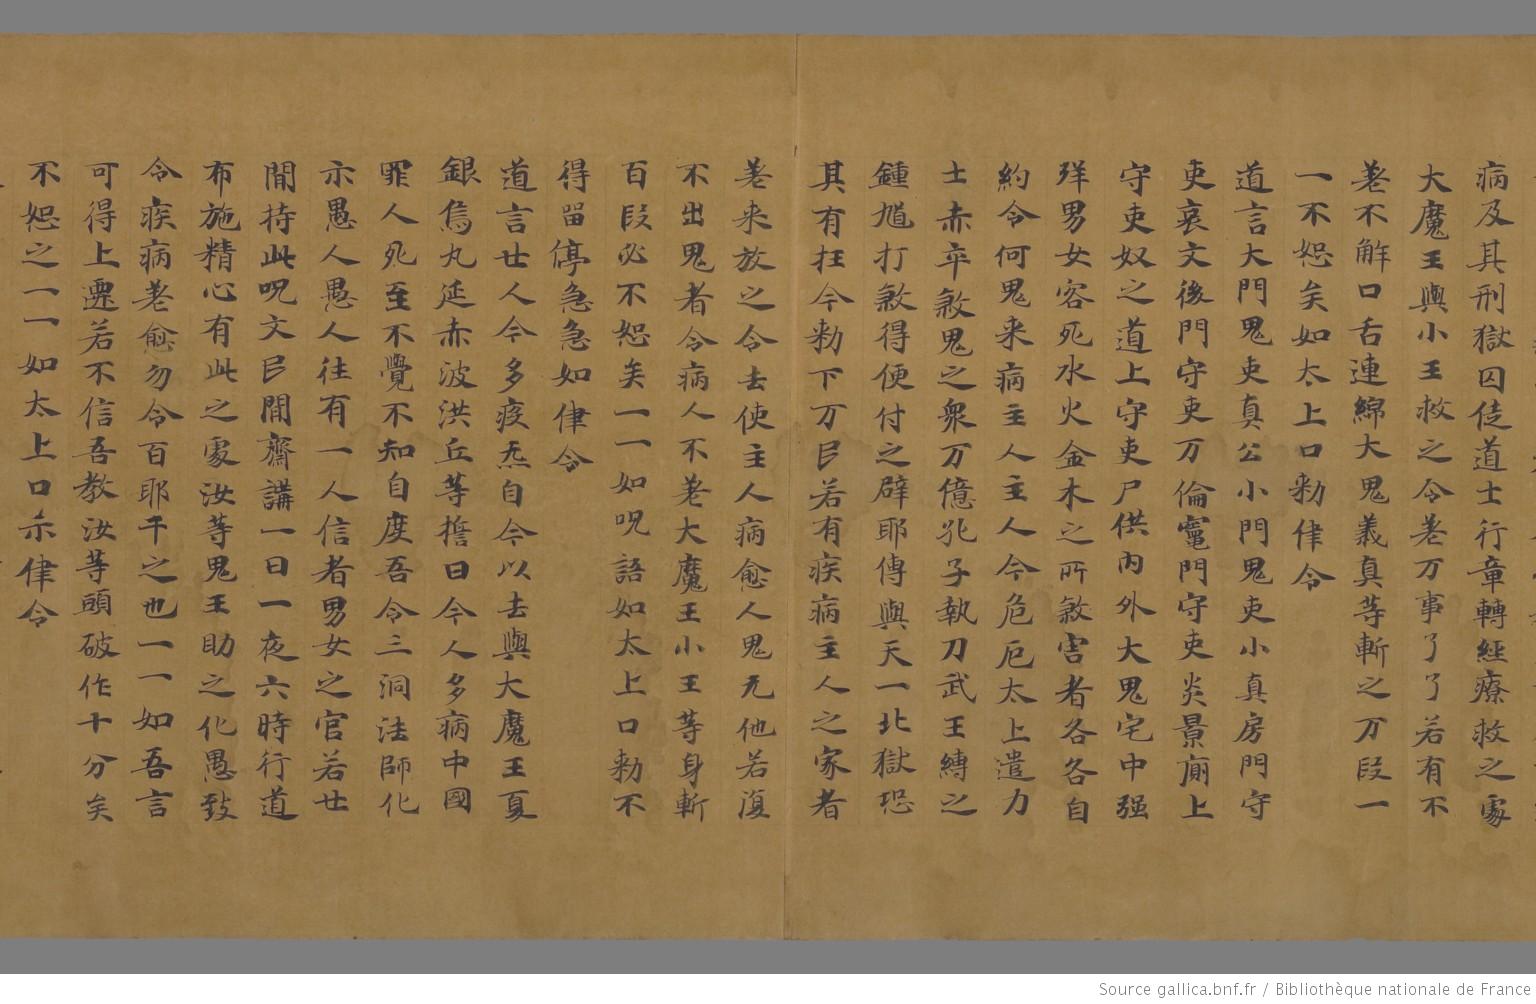 病及其刑獄囚徒道士行章轉經療救之處
大魔王與小王救之令差万事了了若有不
差不解口舌連綿大鬼義真等斬之万段一
一不恕矣如太上口勑律令
道言大門鬼吏真公小門鬼吏小真房門守
吏哀文後門守吏万倫竈門守吏炎景廁上
守吏奴之道上守吏尸供內外大鬼宅中强
殍男女客死水火金木之所煞害者各各自
約令何鬼来病主人主人今危厄太上遣力
士赤卒煞鬼之衆万億孔子執刀武王縛之
鍾馗打煞得便付之辟耶傳與天一北獄恐
其有狂今勑下万民若有疾病主人之家者
差来放之令去使主人病愈人鬼无他若復
不出鬼者令病人不差大魔王小王等身斬
百段必不恕矣一一如呪語如太上口勑不
得留停急急如律令
道言廿人今多疫炁自今以去與大魔王夏
銀烏丸莚赤波洪丘等擔曰今人多病中國
罪人死至不覺不知自度吾令三洞法師化
示愚人愚人往有一人信者男女之官若廿
間持此呪文民間齋講一日一夜六時行道
布施精心有此之處汝等鬼王助之化愚致
令疾病差愈勿令百耶干之也一一如吾言
可得上遷若不信吾教汝等頭破作十分矣
不恕之一一如太上口示律令
Source gallica.bnf.fr / Bibliothèque nationale de France